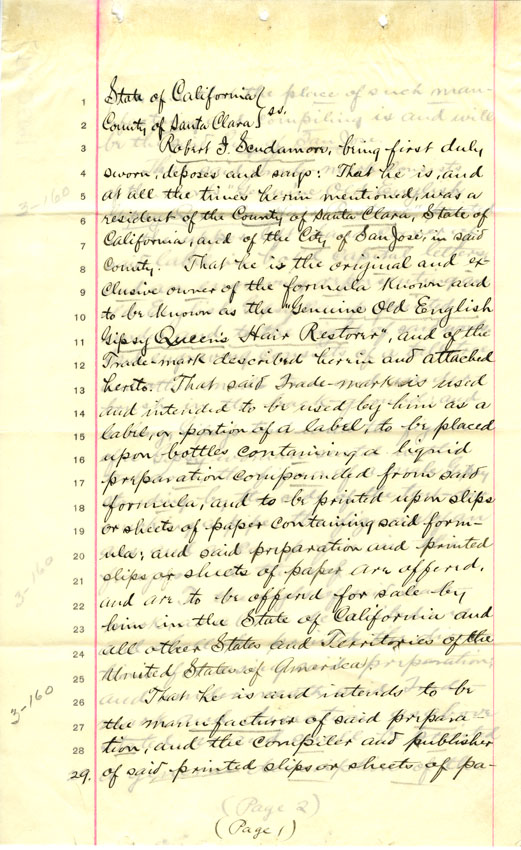 1 State of California }
2 County of Santa Clara } ss.
3 Robert J. Scudamore, being first duly
4 sworn, deposes and says: That he is, and
5 at all the times herein mentioned, was a
6 resident of the County of Santa Clara, State of
7 California, and of the City of San José, in said
8 County. That he is the original and ex-
9 clusive owner of the formula known and
10 to be known as the "Genuine Old English
11 Gipsy Queen's Hair Restorer", and of the
12 Trade-mark described herein and attached
13 hereto. That said Trade-mark is used
14 and intended to be used by him as a
15 label, or portion of a label, to be placed
16 upon bottles containing a liquid
17 preparation compounded from said
18 formula, and to be printed upon slips
19 or sheets of paper containing said form-
20 ula; and said preparation and printed
21 slips or sheets of paper are offered,
22 and are to be offered for sale by
23 him in the State of California and
24 all other States and Territories of the
25 United States of America
26 That he is and intends to be
27 the manufacturer of said prepara-
28 tion, and the compiler and publisher
29. of said printed slips or sheets of pa-
3-160
3-160
3-160
(Page 2)
(Page 1)